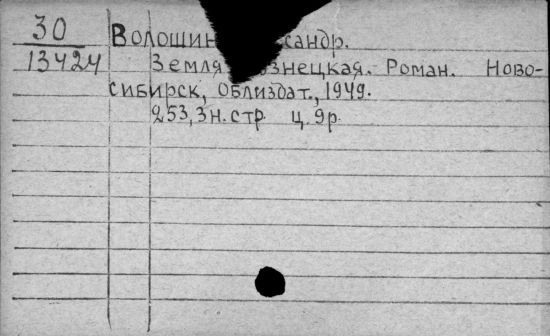 30
13424
Волошин сандр.
Земля знецкая. Роман. Ново-
сибирск, Облиздат., 1949.
253, 3 н. стр ц. 9 р.